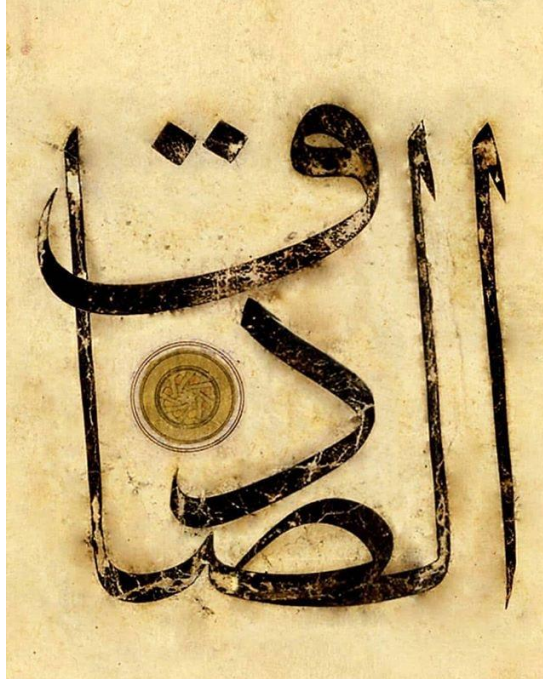 الصادق